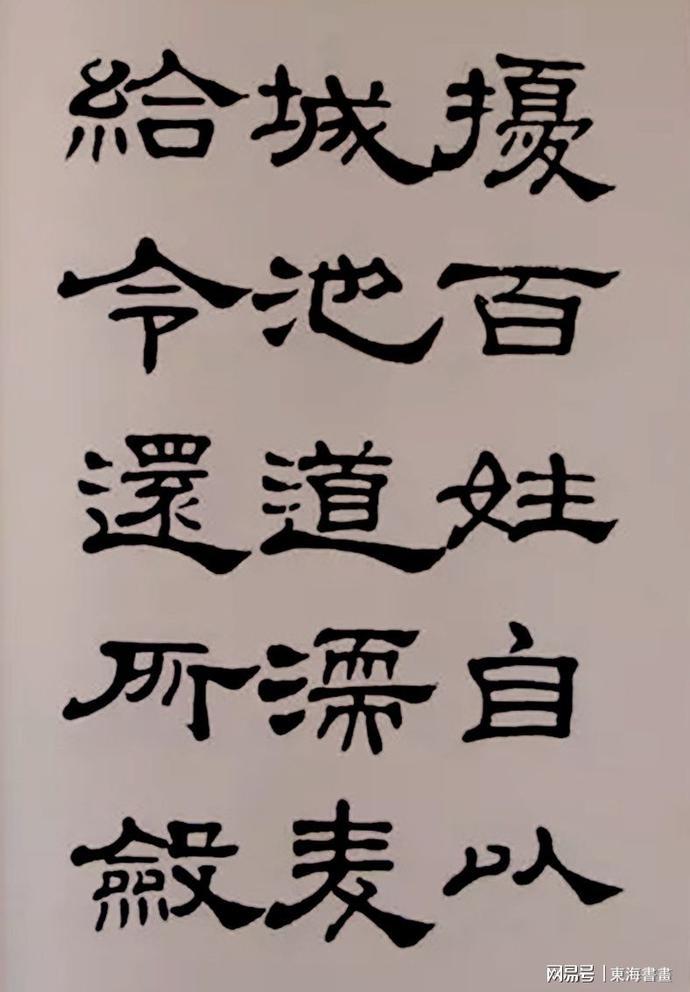 擾百姓自以
城池道濡麦
給令還所斂
网易号 | 東海書畫